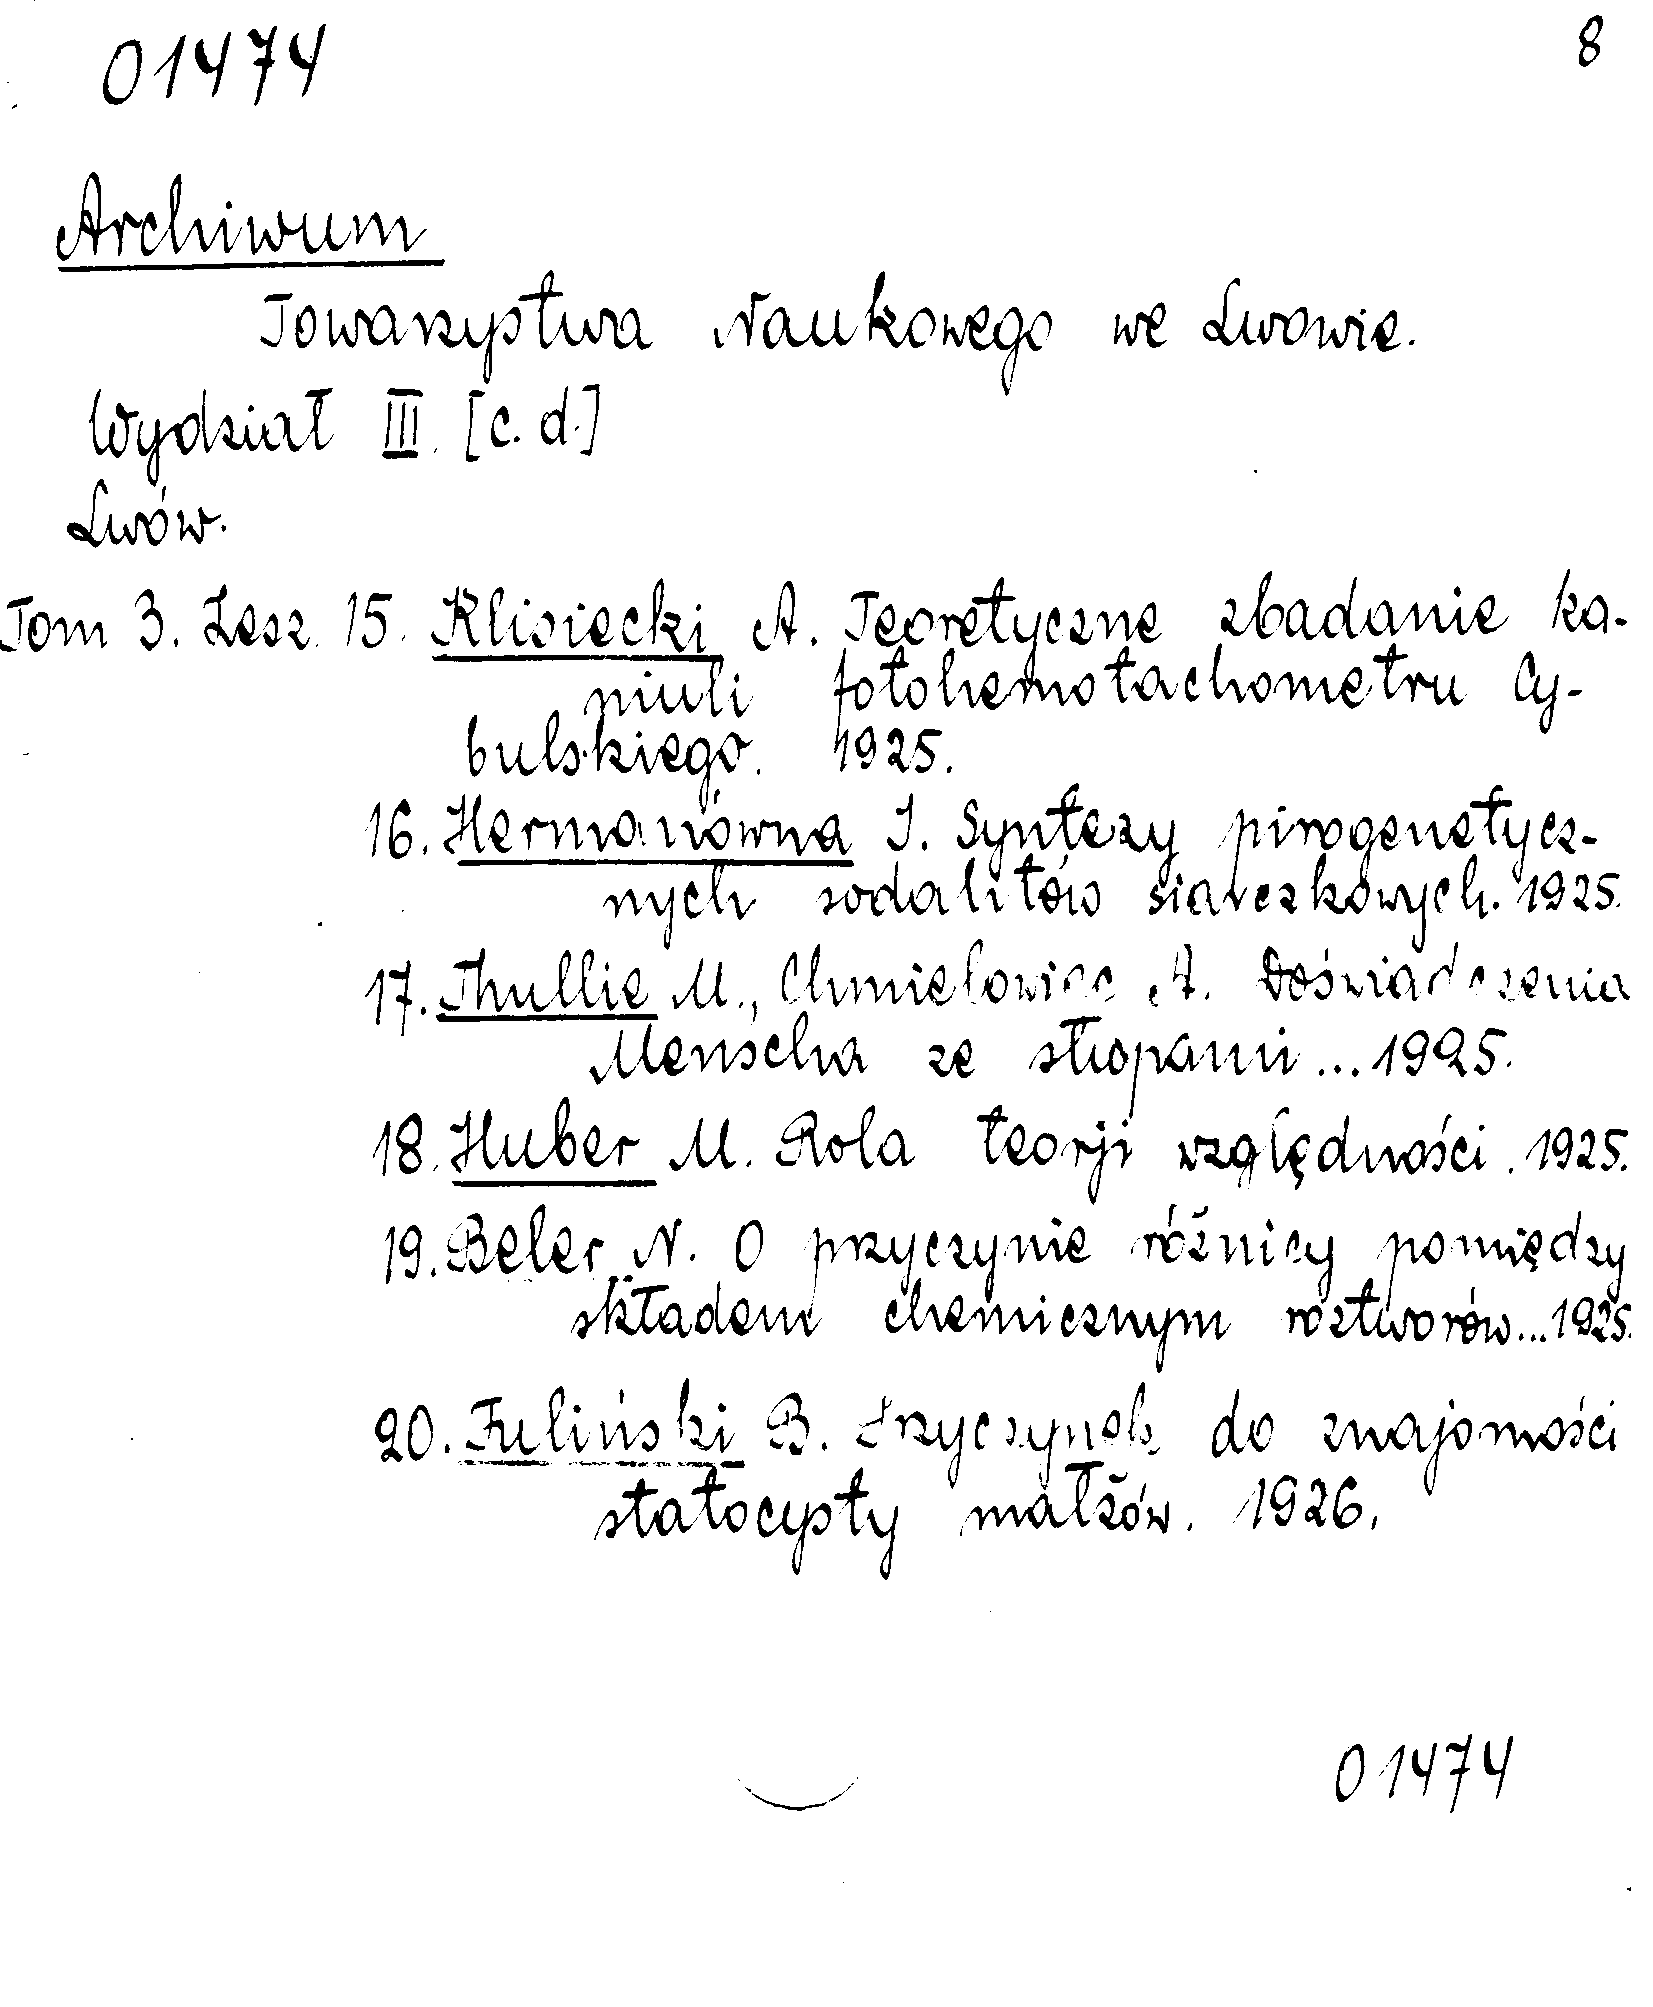 01474
8
Archiwum
Towarzystwa Naukowego we Lwowie.
Wydział III. [c. d.]
Lwów.
Tom 3. Zesz. 15. Klisiecki A. Teoretyczne zbadanie ka-
niuli fotohemotachometru Cy-
bulskiego. 1925.
16. Hermanówna I. Syntezy pirogenetycz-
nych sodalitów siarczkowych. 1925.
17. Thullie M., Chmielowiec A. Doświadczenia
Menscha ze stropami... 1925.
18. Huber M. Rola teorji względności. 1925.
19. Beler N. O przyczynie różnicy pomiędzy
składem chemicznym roztworów... 1925.
20. Fuliński B. Przyczynek do znajomości
statocysty małżów. 1926.
01474